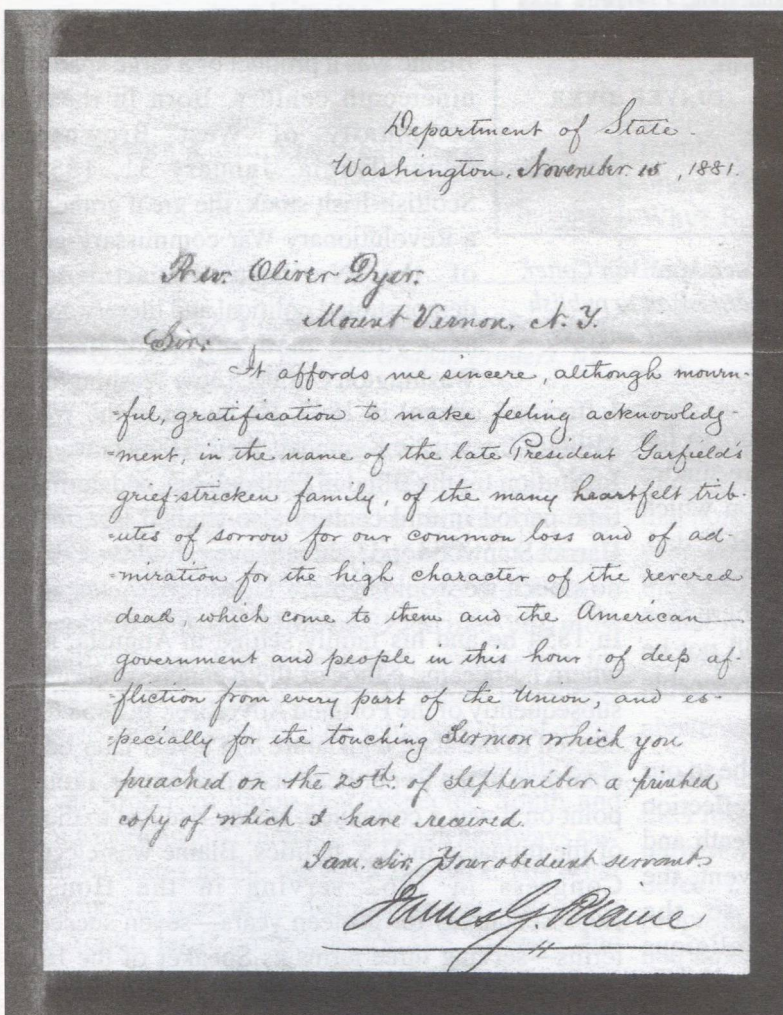 Department of State.
Washington, November 15, 1881.
Rev. Oliver Dyer.
Mount Vernon, N. Y.
Sir:
It affords me sincere, although mourn-
=ful, gratification to make feeling acknowledg-
=ment, in the name of the late President Garfield's
grief-stricken family, of the many heartfelt trib-
=utes of sorrow for our common loss and of ad-
=miration for the high character of the revered
dead, which come to them and the American
government and people in this hour of deep af-
=fliction from every part of the Union, and es-
=pecially for the touching Sermon which you
preached on the 25th. of September a printed
copy of which I have received.
I am, Sir, Your obedient servant,
James G. Blaine